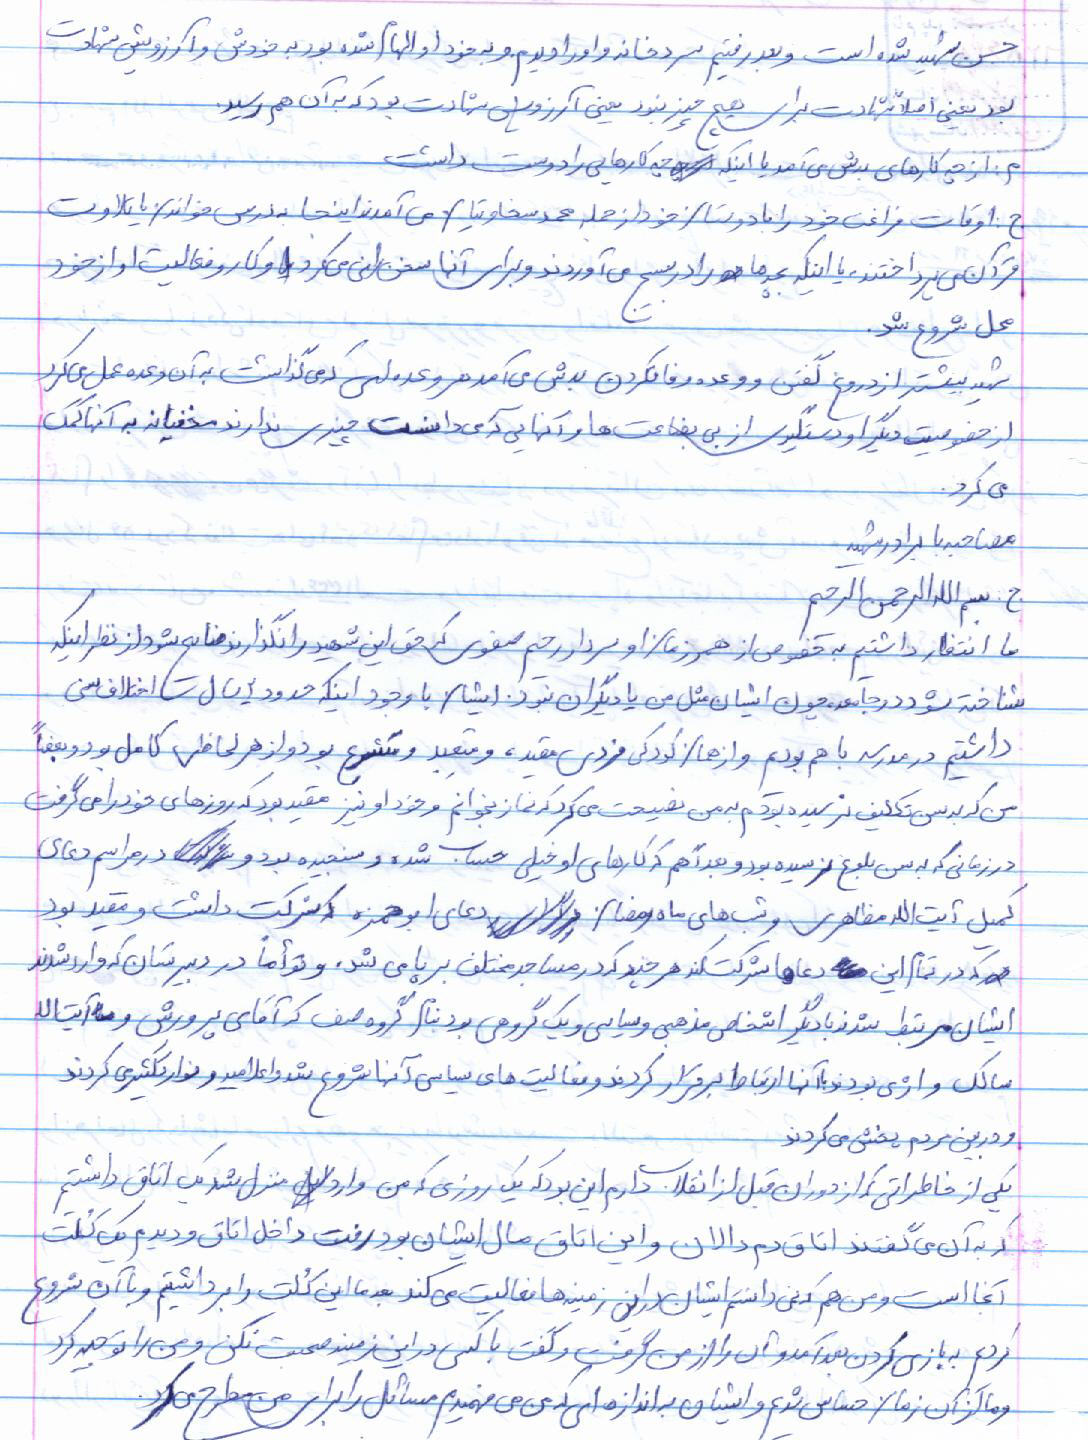 حسن شهید شده است و بعد رفتیم سردخانه و او را دیدیم و به خود او الهام شده بود به خودش و آرزویش شهادت
بود یعنی اصلاً شهادت برای هیچ چیز نبود یعنی آرزوی شهادت بود که به آن هم رسید.
م: از چه کارهای بدش می آمد یا اینکه چه کارهایی را دوست داشت
ج: اوقات فراغت خود را با دوستان خود از جمله محمد سخاوتیان می آمدند اینجا به درس خواندن یا تلاوت
قرآن می پرداختند، یا اینکه بچه ها را در بسیج می آوردند و برای آنها سخنرانی می کرد و کار و فعالیت او از خود
محل شروع شد.
شهید بیشتر از دروغ گفتن و وعده وفا نکردن بدش می آمد هر وعده ای که می گذاشت به آن وعده عمل می کرد
از خصوصیت دیگر او دستگیری از بی بضاعت ها و آنهایی که می دانست چیزی ندارند مخفیانه به آنها کمک
می کرد.
مصاحبه با برادر شهید
ج: بسم الله الرحمن الرحیم
ما انتظار داشتیم به خصوص از همرزمان او سردار رحیم صفوی که حق این شهید را نگذارند ضایع شود از نظر اینکه
شناخته شود در جامعه، چون ایشان مثل من یا دیگران نبود. ایشان با وجود اینکه حدود سال اختلاف سنی
داشتیم در مدرسه با هم بودیم و از همان کودکی فردی مقید، و متعبد و متشرع بود و از هر لحاظی کامل بود و بعضاً
من که به سن تکلیف نرسیده بودم به من نصیحت می کرد که نماز بخوانم و خود او نیز مقید بود که روزهای خود را می گرفت
در زمانی که به سن بلوغ نرسیده بود و بعداً هم که کارهای او خیلی حساب شده و سنجیده بود و در مراسم دعای
کمیل آیت الله مظاهری و شب های ماه رمضان دعای ابوحمزه شرکت داشت و مقید بود
که در تمام این دعاها شرکت کند هر چند که در مساجد مختلف بر پا می شد، و توأماً در دبیرستان که وارد شدند
ایشان مرتبط شدند با دیگر اشخاص مذهبی و سیاسی و یک گروهی بود بنام گروه صف که آقای پرورش و آیت الله
سالک و اژه ای بودند با آنها ارتباط برقرار کردند و فعالیت های سیاسی آنها شروع شد و اعلامیه و نوار تکثیر می کردند
و در بین مردم پخش می کردند
یکی از خاطراتی که از دوران قبل از انقلاب دارم این بود که یک روزی که من وارد منزل شدم یک اتاق داشتیم
که به آن می گفتند اتاق دم دالان و این اتاق مال ایشان بود رفتم داخل اتاق و دیدم یک کُلت
آنجا است و من هم که نمی دانستم ایشان در این زمینه ها فعالیت می کند بعد ما این کُلت را برداشتیم و با آن شروع
کردیم به بازی کردن بعد آمد و آن را از من گرفت و گفت با کسی در این زمینه صحبت نکن و من را توجیه کرد
و ما از آن زمان حساس شدیم و ایشان به اندازه ای که من می فهمیدم مسائل را برای من مطرح می کرد.